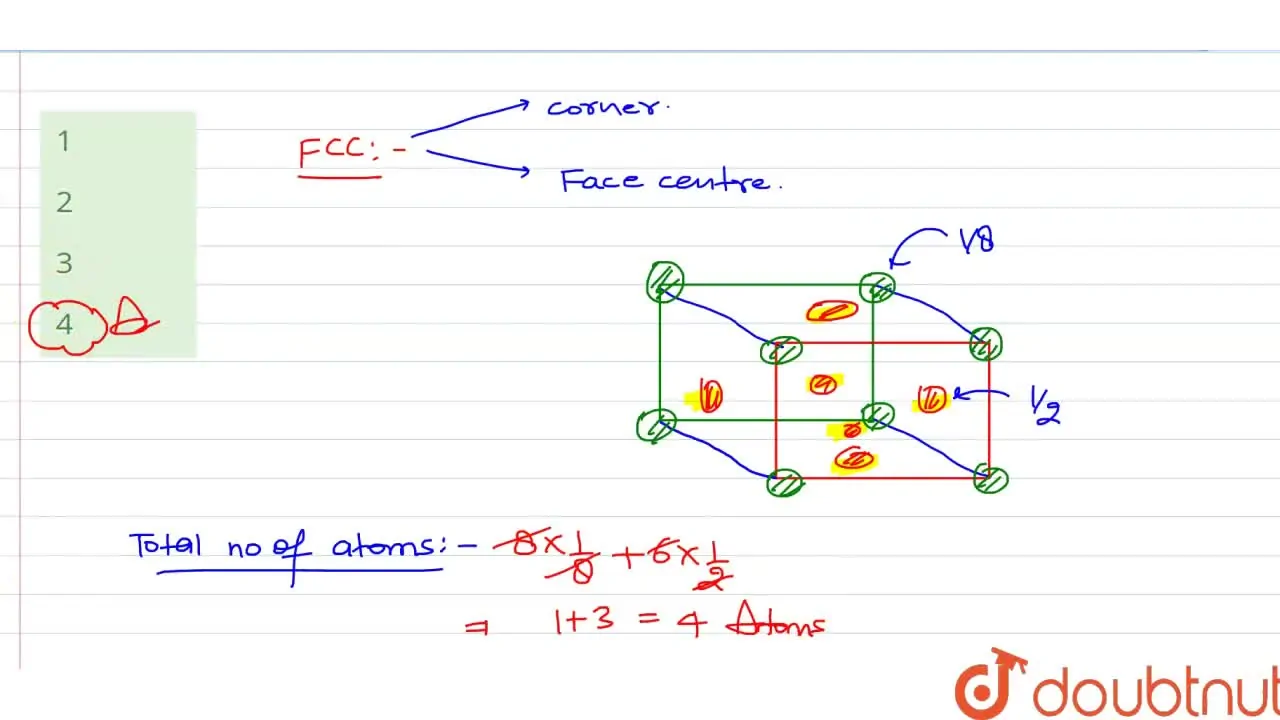 corner.
1
FCC:-
Face centre.
2
1/8
3
4 A
1/2
Total no of atoms:- 8×1/8 + 6×1/2
⇒ 1+3 = 4 Atoms
doubtnut